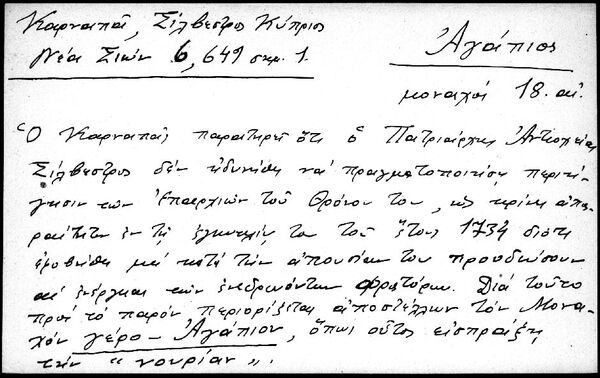 Καρναπᾶ, Σίλβεστρος Κύπριος
Νέα Σιών 6, 649 σημ. 1.
Ἀγάπιος
μοναχός 18. αἰ.
Ὁ Καρναπᾶς παρατηρεῖ ὅτι ὁ Πατριάρχης Ἀντιοχείας
Σίλβεστρος δὲν ἠδυνήθη νά πραγματοποιήσῃ περιή-
γησιν τῶν Ἐπαρχιῶν τοῦ Θρόνου του, ὡς κρίνει ἀπα-
ραίτητον ἐν τῇ ἐγκυκλίῳ του τοῦ ἔτους 1734 διότι
ἐφοβήθη μή κατά τήν ἀπουσίαν του προοδεύσουν
αἱ ἐνέργειαι τῶν ἐνεδρευόντων φρατόρων. Διά τοῦτο
πρός τό παρόν περιορίζεται ἀποστέλλων τόν Μονα-
χόν γέρο-Ἀγάπιον, ὅπως οὗτος εἰσπράξῃ
τήν "νουρίαν".